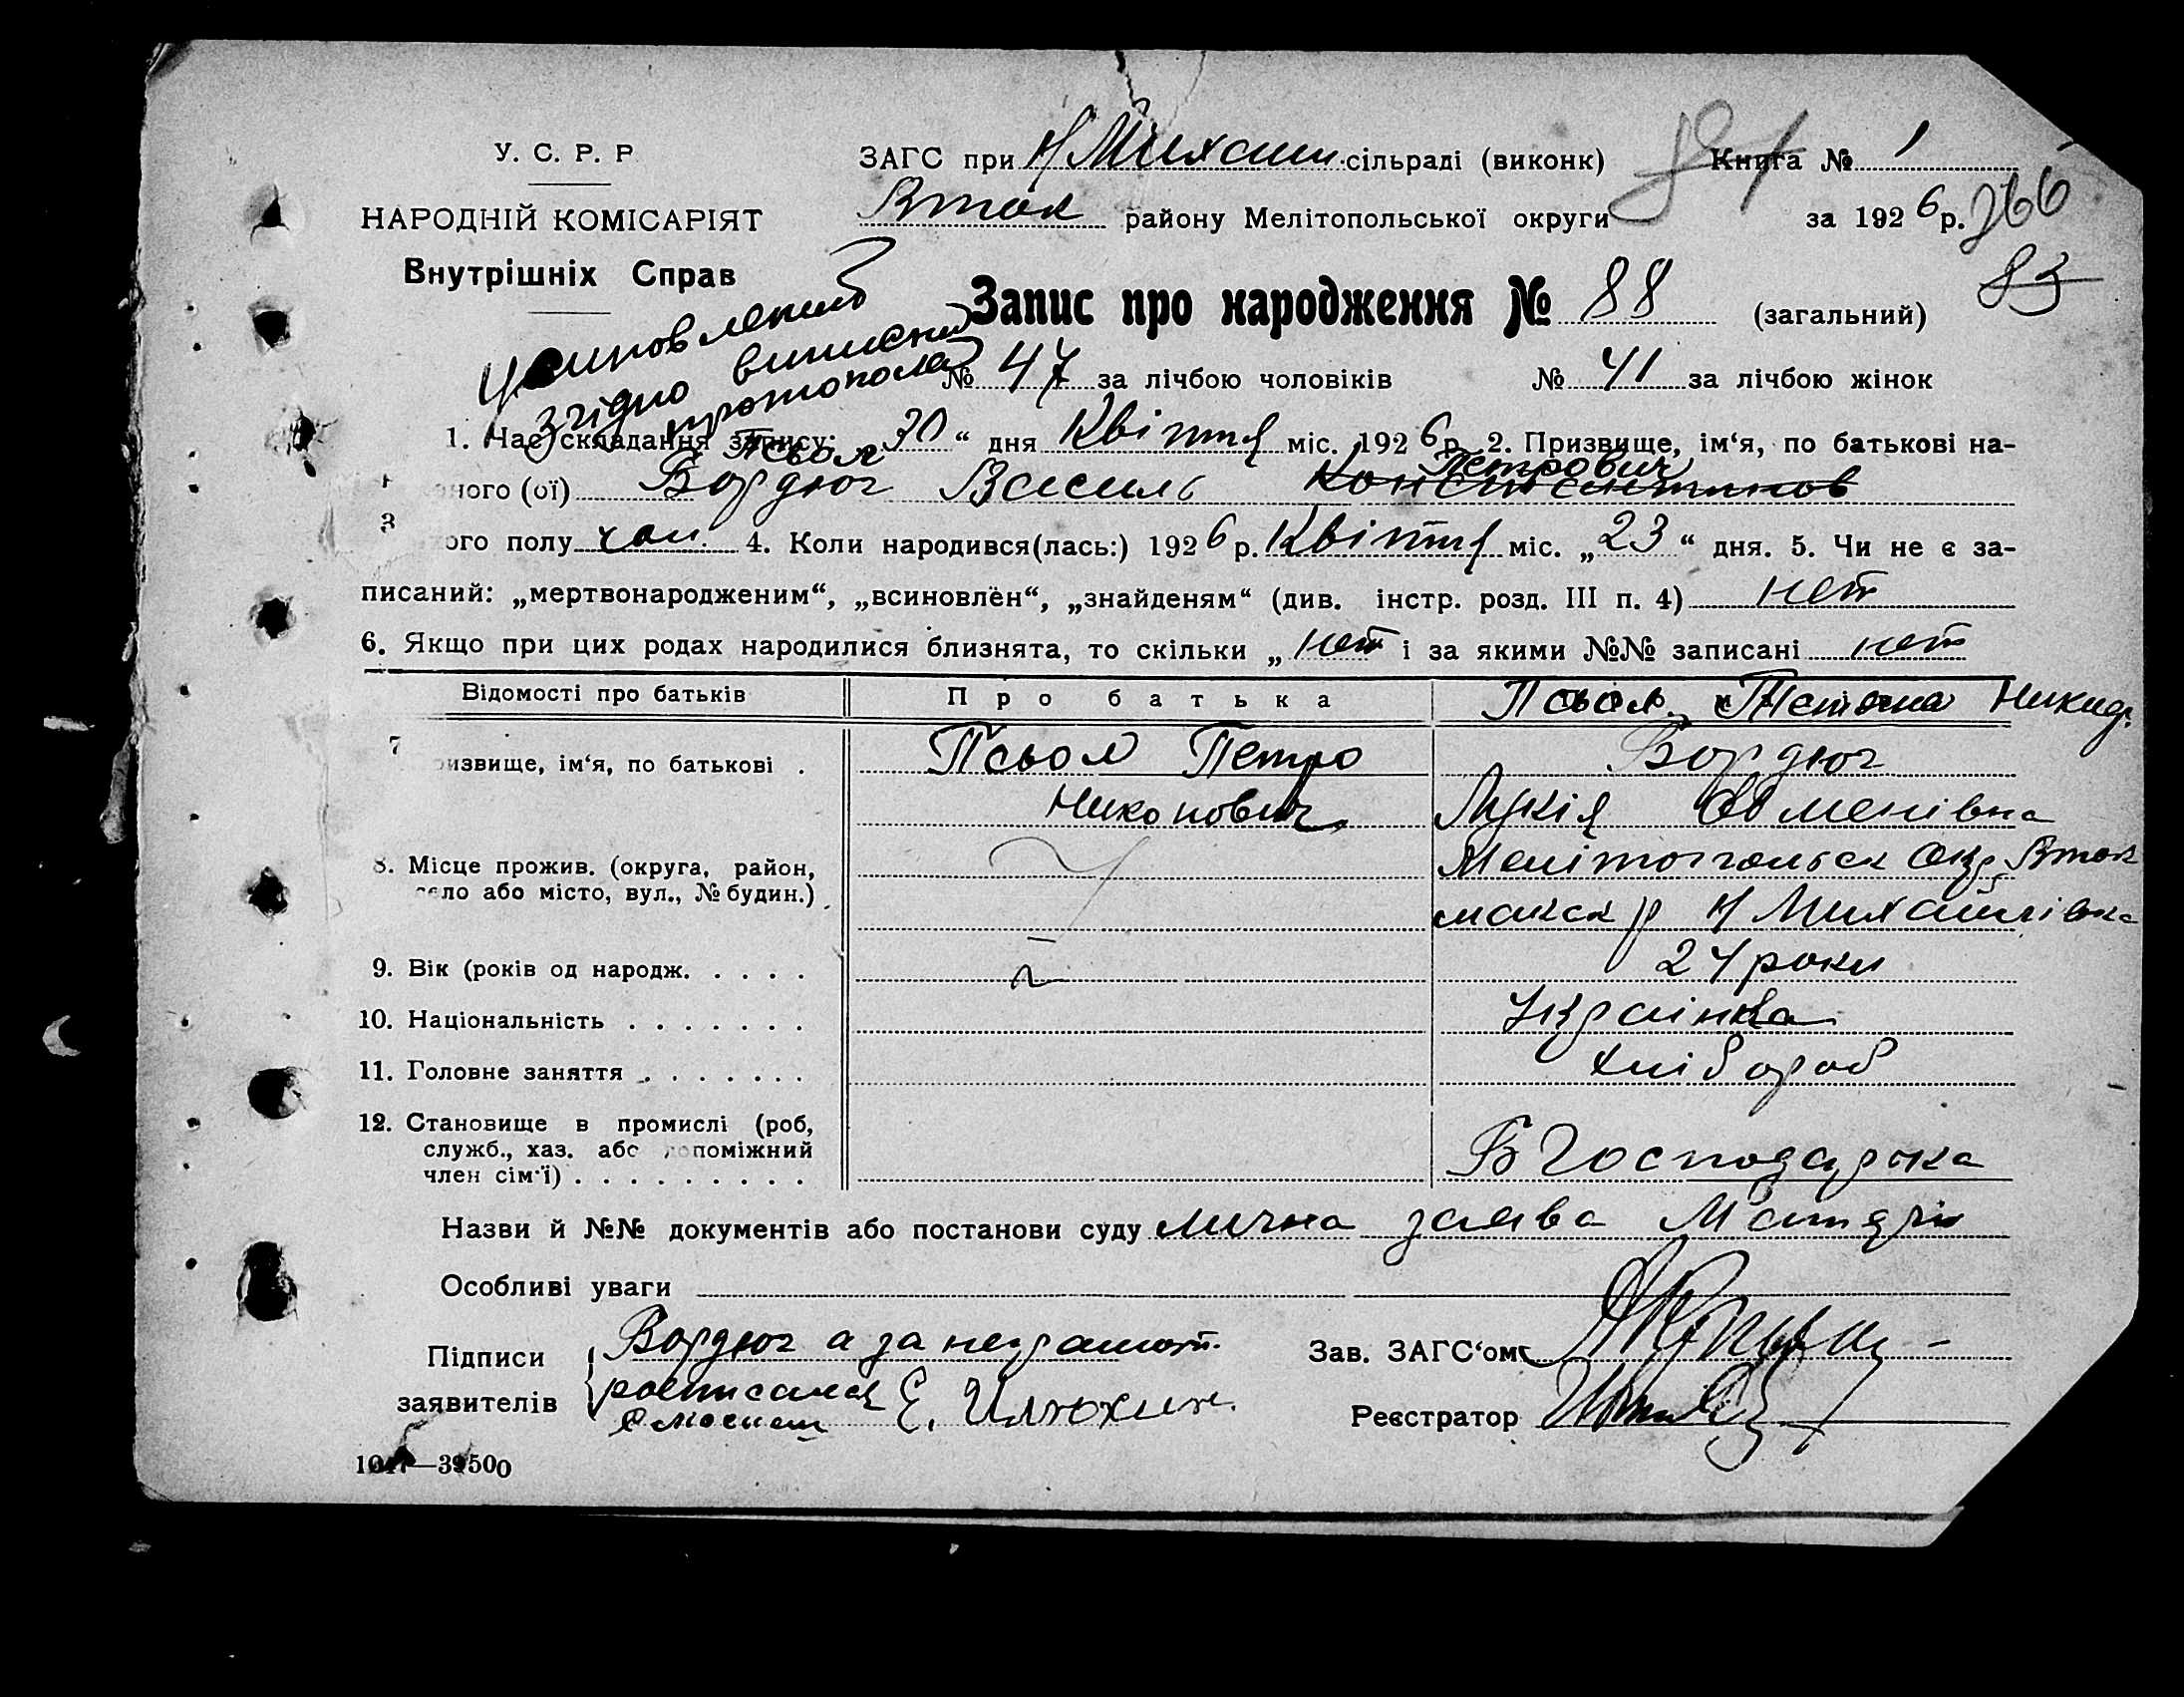 У. С. Р. Р
НАРОДНІЙ КОМІСАРІЯТ
Внутрішніх Справ
ЗАГС при Н Михайл. сільраді (виконк) Книга № 1
Вток району Мелітопольської округи за 1926 р. 266
83
Запис про народження № 88 (загальний)
Усиновлений
згідно виписки
протокола
№ 47 за лічбою чоловіків № 41 за лічбою жінок
1. Час складання запису: 30 “ дня Квітня міс. 1926 р. 2. Призвище, ім‘я, по батькові на-
Псьол Петрович
ного (ої) Бордюг Василь Константинов
ого полу чол. 4. Коли народився(лась:) 1926 р. Квітня міс. „ 23 “ дня. 5. Чи не є за-
писаний: „мертвонародженим“, „всиновлён“, „знайденям“ (див. інстр. розд. III п. 4) нет
6. Якщо при цих родах народилися близнята, то скільки „ нет і за якими №№ записані нет
Відомості про батьків Про батька Псьол Тетяна Никид.
7 извище, ім‘я, по батькові . Псьол Петро Бордюг
Никонович Лукія
8. Місце прожив. (округа, район, Мелітопольск Окр Вток
ло або місто, вул., № будин.) макск р Н Михайлівка
9. Вік (років од народж. . . . . 24 роки
10. Національність . . . . . . . Українка
11. Головне заняття . . . . . . . хлібороб
12. Становище в промислі (роб,
служб., хаз. або допоміжний
член сім‘ї) . . . . . . . . . Б Господарка
Назви й №№ документів або постанови суду лична заява Матері
Особливі уваги
Підписи Бордюг а за неграмотн.
заявителів росписался Е. Илюхин.
Зав. ЗАГС‘ом
Реєстратор
1047—39500